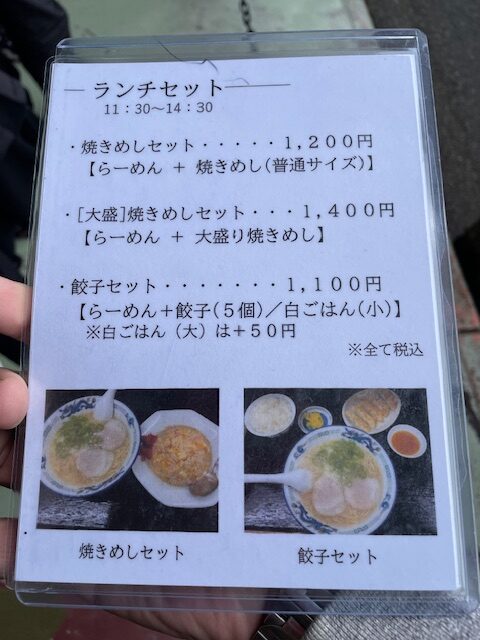 ランチセット
11:30～14:30
・焼きめしセット・・・・・1,200円
【らーめん ＋ 焼きめし(普通サイズ)】
・[大盛]焼きめしセット・・・1,400円
【らーめん ＋ 大盛り焼きめし】
・餃子セット・・・・・・・1,100円
【らーめん＋餃子(５個)／白ごはん(小)】
※白ごはん（大）は＋50円
※全て税込
焼きめしセット
餃子セット